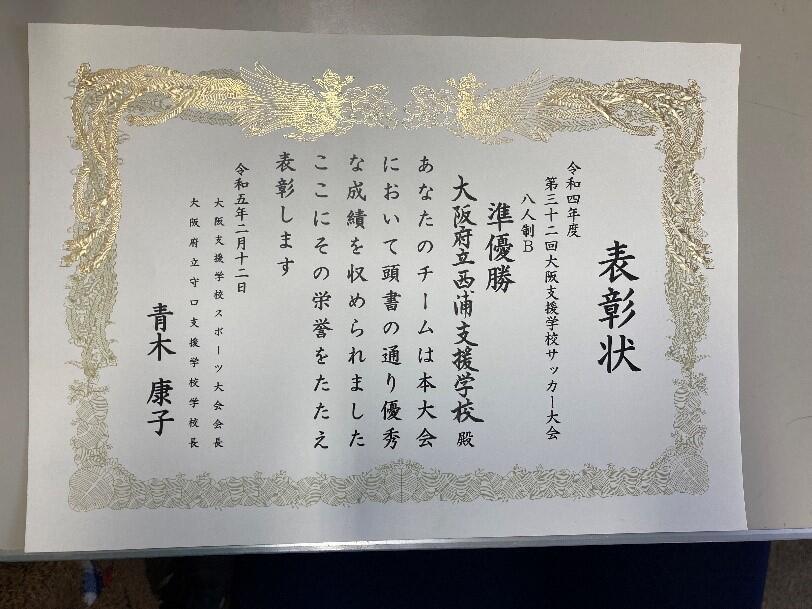 表彰状
令和四年度
第三十二回大阪支援学校サッカー大会
八人制B
準優勝
大阪府立西浦支援学校 殿
あなたのチームは本大会
において頭書の通り優秀
な成績を収められました
ここにその栄誉をたたえ
表彰します
令和五年二月十二日
大阪支援学校スポーツ大会会長
大阪府立守口支援学校学校長
青木 康子